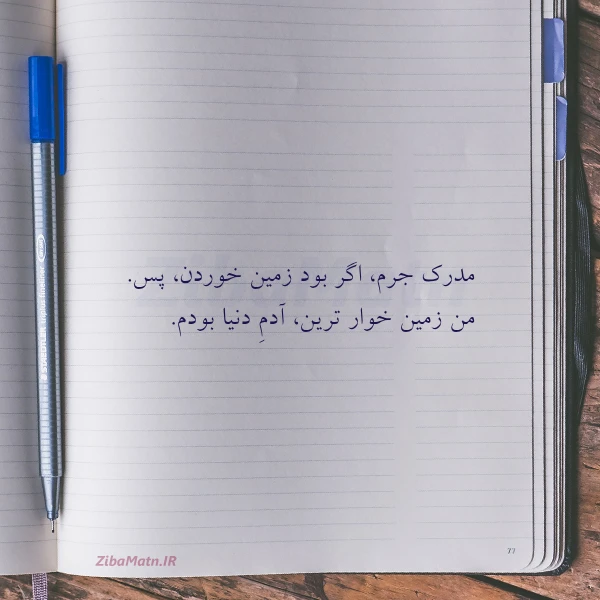 مدرک جرم، اگر بود زمین خوردن، پس.
من زمین خوار ترین، آدمِ دنیا بودم.
ZibaMatn.IR
77